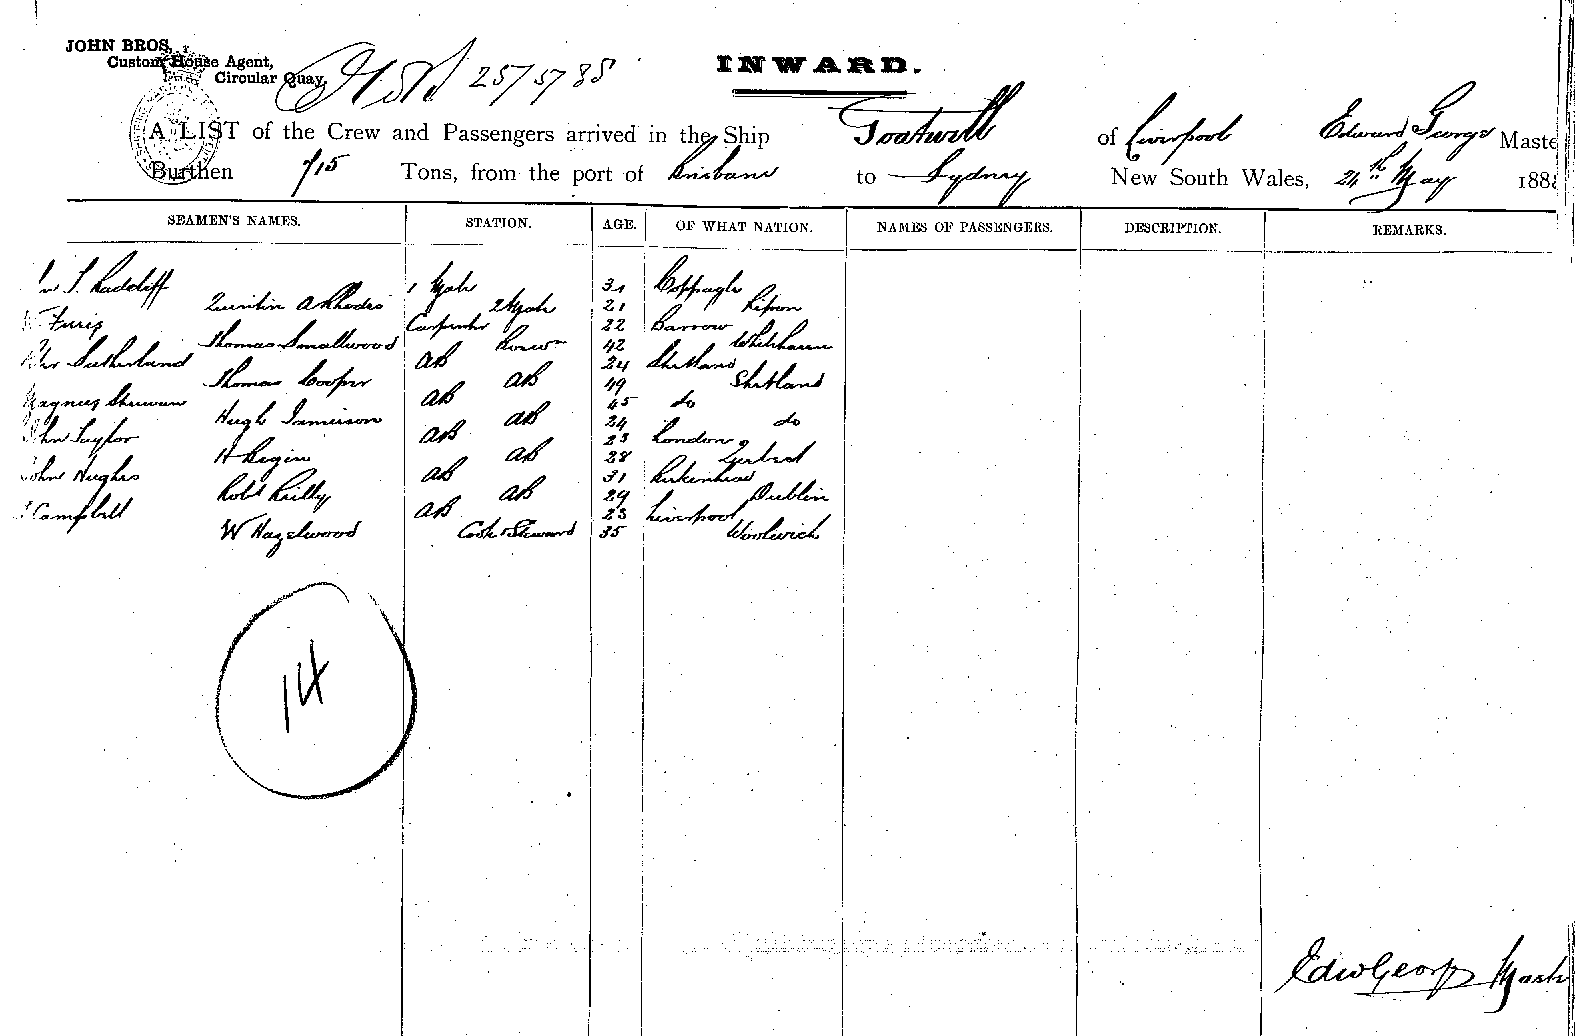 JOHN BROS,
Custom House Agent,
Circular Quay,
25/5/88
INWARD.
A LIST of the Crew and Passengers arrived in the Ship Toatwell of Liverpool Edward George Maste
Burthen 715 Tons, from the port of Brisbane to Sydney New South Wales, 24th May 188
SEAMEN'S NAMES. STATION. AGE. OF WHAT NATION. NAMES OF PASSENGERS. DESCRIPTION. REMARKS.
Radcliff 1 Mate 31
Quintin A Rhodes 2 Mate 21 Ripon
Carpenter 22 Barrow
Thomas Smallwood 42 Whitehaven
Sutherland AB 24 Shetland
Thomas Cooper AB 49 Shetland
Magnus AB 45 do
Hugh Jamieson AB 24 do
John Taylor AB 23 London
H AB 28
John Hughes AB 31 Birkenhead
Robt Reilly AB 29 Dublin
Campbell AB 23 Liverpool
W Hazelwood Cook & Steward 35 Woolwich
14
Edw George Mast